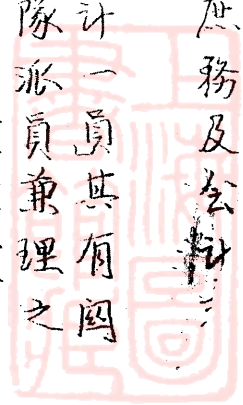 庶務及会計
計一員其有闕
隊派員兼理之